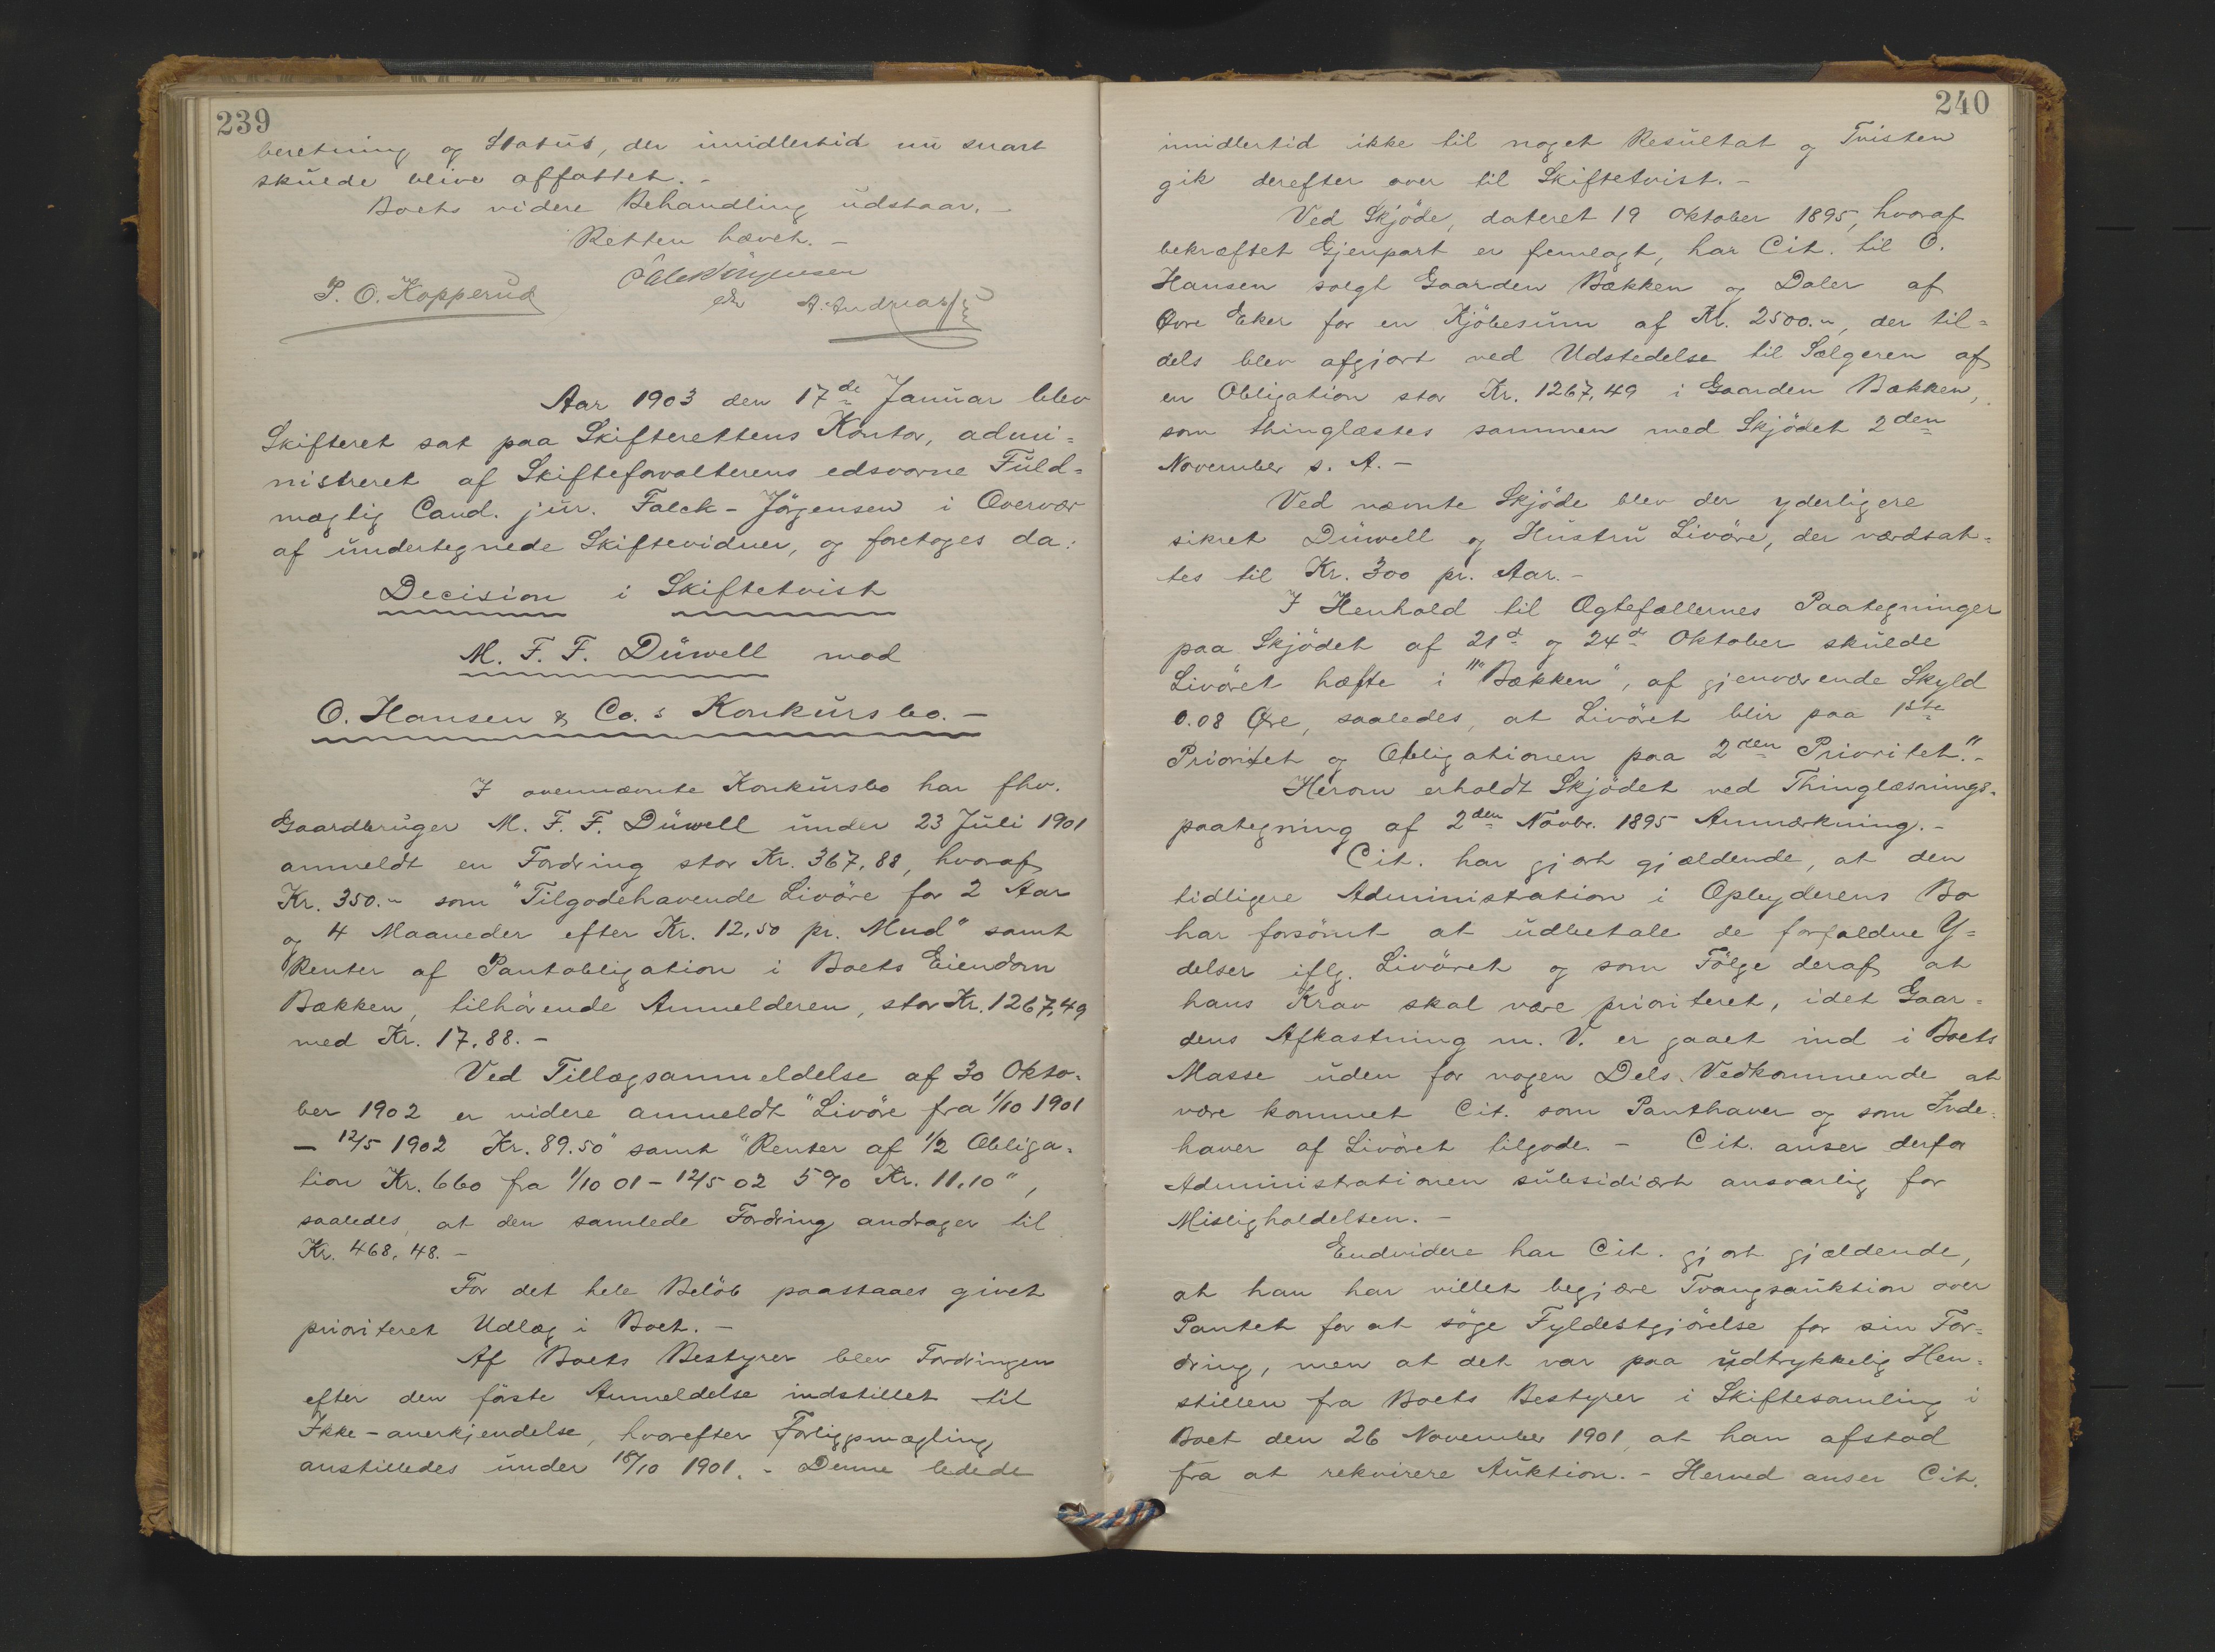 239
beretning og Status, der imidlertid nu snart
skulde blive affattet. –
Boets videre Behandling udstaar. –
Retten hævet. –
P. O. Kopperud
Falck Jørgensen
A. Andreas
Aar 1903 den 17de Januar blev
Skifteret sat paa Skifterettens Kontor, admi=
nistreret af Skifteforvalterens edsvorne Fuld=
mægtig Cand. jur. Falck-Jörgensen i Overvær
af undertegnede Skiftevidner, og foretoges da:
Decision i Skiftetvist
M. F. F. Düwell mod
O. Hansen & Co.s Konkursbo. –
I ovennævnte Konkursbo har fhv.
Gaardbruger M. F. F. Düwell under 23 Juli 1901
anmeldt en Fordring stor Kr. 367,88, hvoraf
Kr. 350.- som "Tilgodehavende Livöre for 2 Aar
og 4 Maaneder efter Kr. 12,50 pr. Mnd" samt
Renter af Pantobligation i Boets Eiendom
Bækken, tilhörende Anmelderen, stor Kr. 1267,49
med Kr. 17.88. –
Ved Tillægsanmeldelse af 30 Okto=
ber 1902 er videre anmeldt "Livöre fra 1/10 1901
– 12/5 1902 Kr. 89.50" samt "Renter af 1/2 Obliga=
tion Kr. 660 fra 1/10 01 – 12/5 02 5% Kr. 11,10",
saaledes, at den samlede Fordring andrager til
Kr. 468,48. –
For det hele Belöb paastaaes givet
prioriteret Udlæg i Boet. –
Af Boets Bestyrer blev Fordringen
efter den förste Anmeldelse indstillet til
Ikke-anerkjendelse, hvorefter Forligsmægling
anstilledes under 18/10 1901. – Denne ledede
240
imidlertid ikke til noget Resultat og Tvisten
gik derefter over til Skiftetvist. –
Ved Skjöde, dateret 19 Oktober 1895, hvoraf
bekræftet Gjenpart er fremlagt, har Cit. til O.
Hansen solgt Gaarden Bækken og Daler af
Övre Eker for en Kjöbesum af Kr. 2500.-, der til=
dels blev afgjort ved Udstedelse til Sælgeren af
en Obligation stor Kr. 1267,49 i Gaarden Bækken,
som thinglæstes sammen med Skjödet 2den
November s. A. –
Ved nævnte Skjöde blev der yderligere
sikret Düwell og Hustru Livöre, der værdsat=
tes til Kr. 300 pr. Aar. –
I Henhold til Ægtefællernes Paategninger
paa Skjödet af 21d og 24d Oktober skulde
Livöret hæfte i "Bækken", af gjenværende Skyld
0.08 Øre, saaledes, at Livöret blir paa 1ste
Prioritet og Obligationen paa 2den Prioritet". –
Herom erholdt Skjödet ved Thinglæsnings=
paategning af 2den Novbr. 1895 Anmærkning. –
Cit. har gjort gjældende, at den
tidligere Administration i Opbyderens Bo
har forsömt at udbetale de forfaldne Y=
delser iflg. Livöret og som Fölge deraf at
hans Krav skal være prioriteret, idet Gaar=
dens Afkastning m. V. er gaaet ind i Boets
Masse uden for nogen Dels Vedkommende at
være kommet Cit. som Panthaver og som Inde=
haver af Livöret tilgode. – Cit. anser derfor
Administrationen subsidiært ansvarlig for
Misligholdelsen. –
Endvidere har Cit. gjort gjældende,
at han har villet begjære Tvangsauktion over
Pantet for at söge Fyldestgjörelse for sin For=
dring, men at det var paa udtrykkelig Hen=
stillen fra Boets Bestyrer i Skiftesamling i
Boet den 26 November 1901, at han afstod
fra at rekvirere Auktion. – Herved anser Cit.